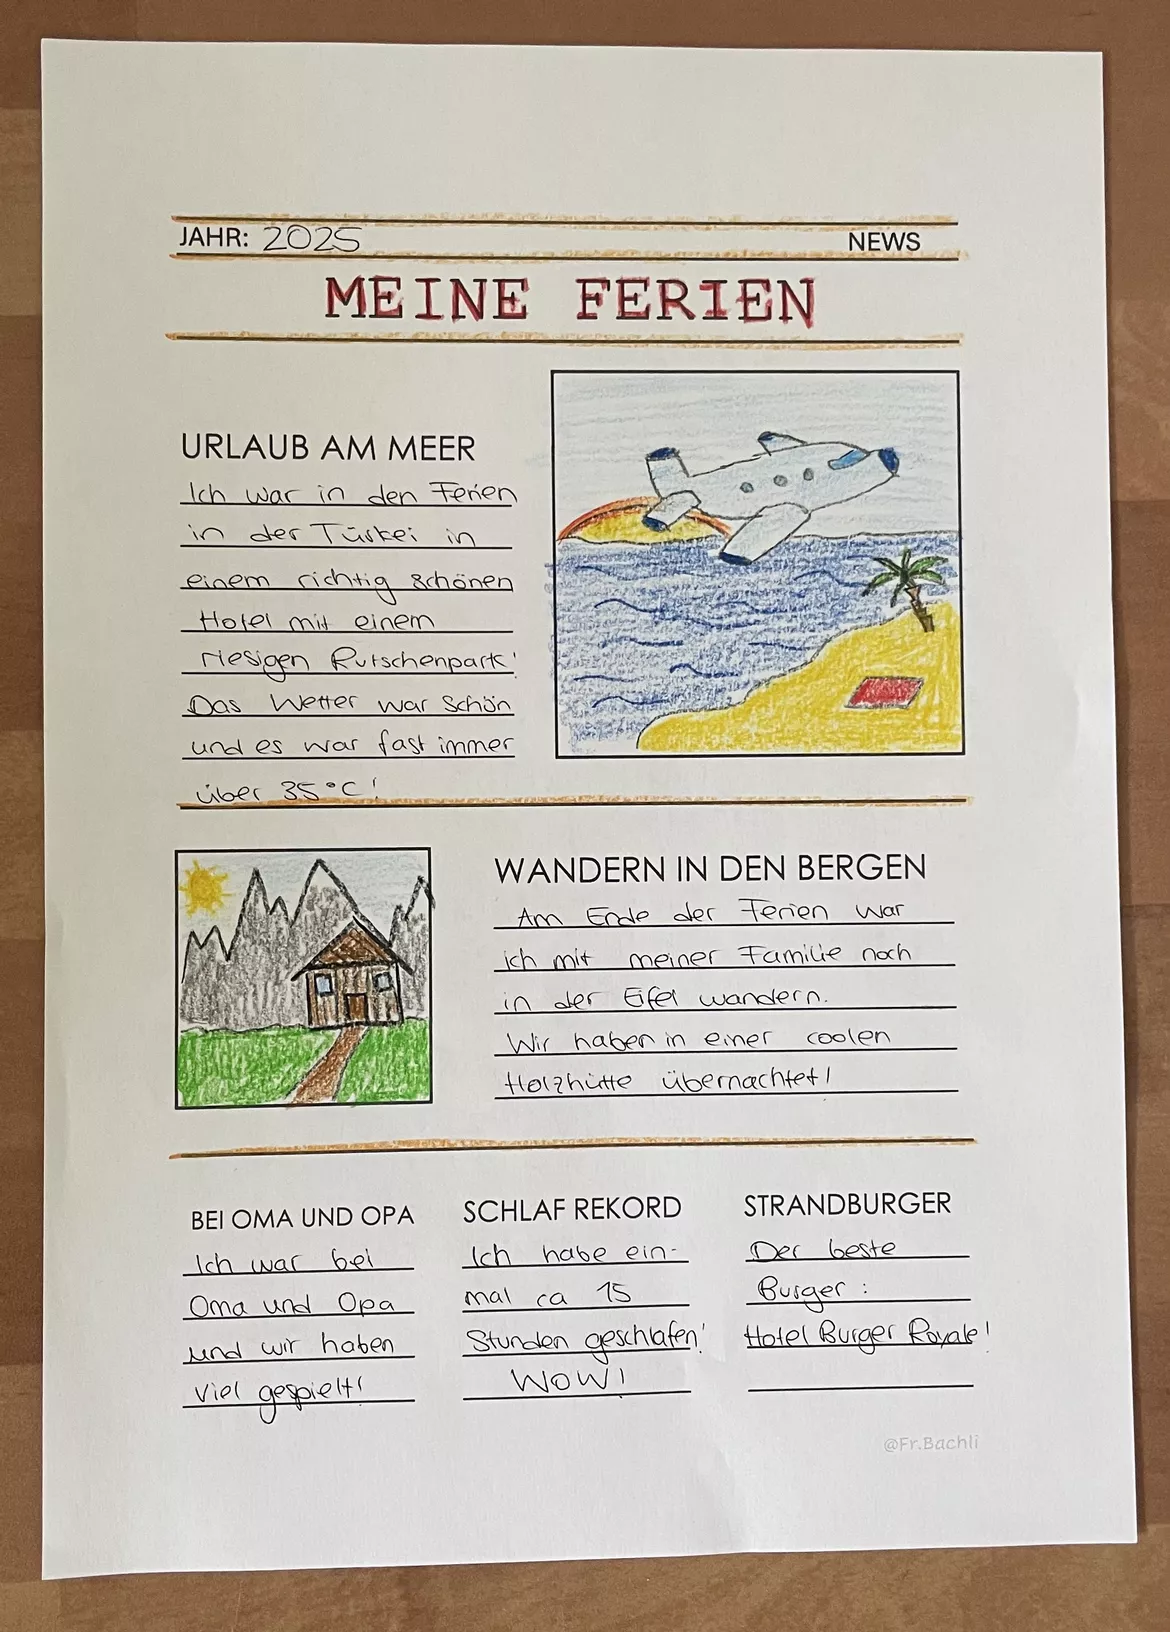 JAHR: 2025 NEWS
MEINE FERIEN
URLAUB AM MEER
Ich war in den Ferien
in der Türkei in
einem richtig schönen
Hotel mit einem
riesigen Rutschenpark!
Das Wetter war schön
und es war fast immer
über 35°C!
WANDERN IN DEN BERGEN
Am Ende der Ferien war
ich mit meiner Familie noch
in der Eifel wandern.
Wir haben in einer coolen
Holzhütte übernachtet!
BEI OMA UND OPA
Ich war bei
Oma und Opa
und wir haben
viel gespielt!
SCHLAF REKORD
Ich habe ein-
mal ca 15
Stunden geschlafen!
WOW!
STRANDBURGER
Der beste
Burger:
Hotel Burger Royale!
@Fr.Bachli